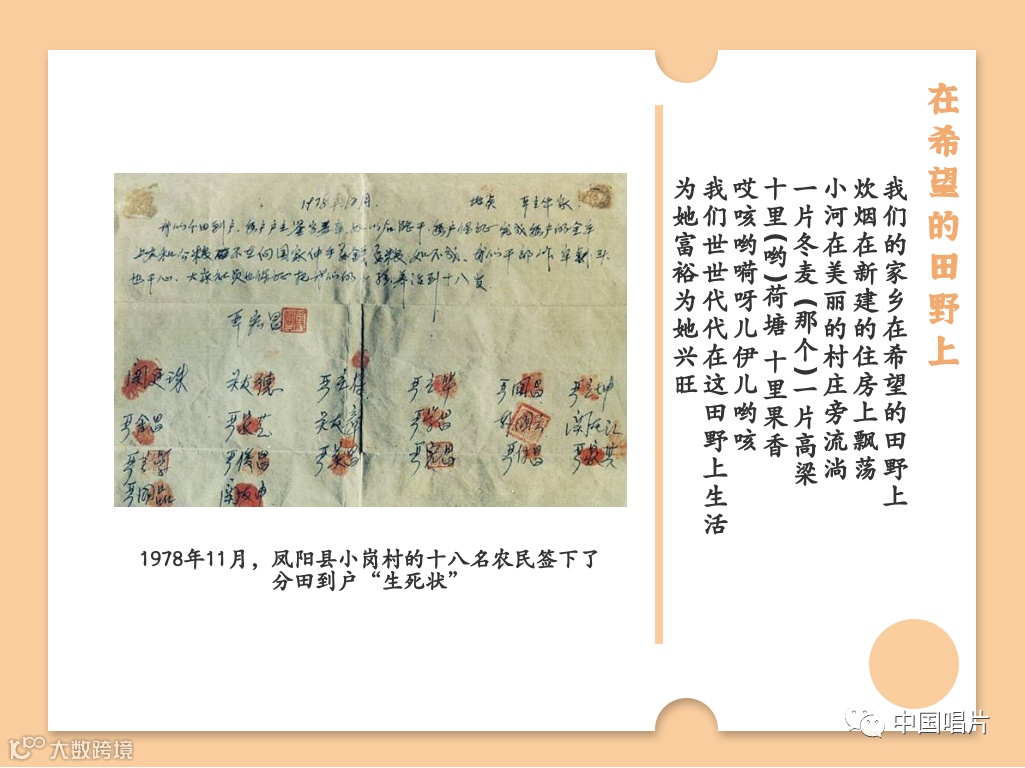 在希望的田野上
我们的家乡在希望的田野上
炊烟在新建的住房上飘荡
小河在美丽的村庄旁流淌
一片冬麦(那个)一片高粱
十里(哟)荷塘 十里果香
哎咳哟嗬呀儿伊儿哟咳
我们世世代代在这田野上生活
为她富裕为她兴旺
1978年12月. 地点 严立华家.
我们分田到户,每户户主签字盖章,如以后能干,每户保证完成每户的全年
上交和公粮 不在向国家伸手要钱要粮 如不成,我们干部作牢刹头
也干心,大家社员也保证把我们的小孩养活到十八岁.
严宏昌
关廷珠 关友德 严立符 严立华 严国昌 严立坤
严金昌 严家芝 关友章 严学昌 韩国云 关友江
严立学 严俊昌 严美昌 严宏昌 严付昌 严家其
严国品 关友申
1978年11月，凤阳县小岗村的十八名农民签下了
分田到户“生死状”
中国唱片
大数跨境